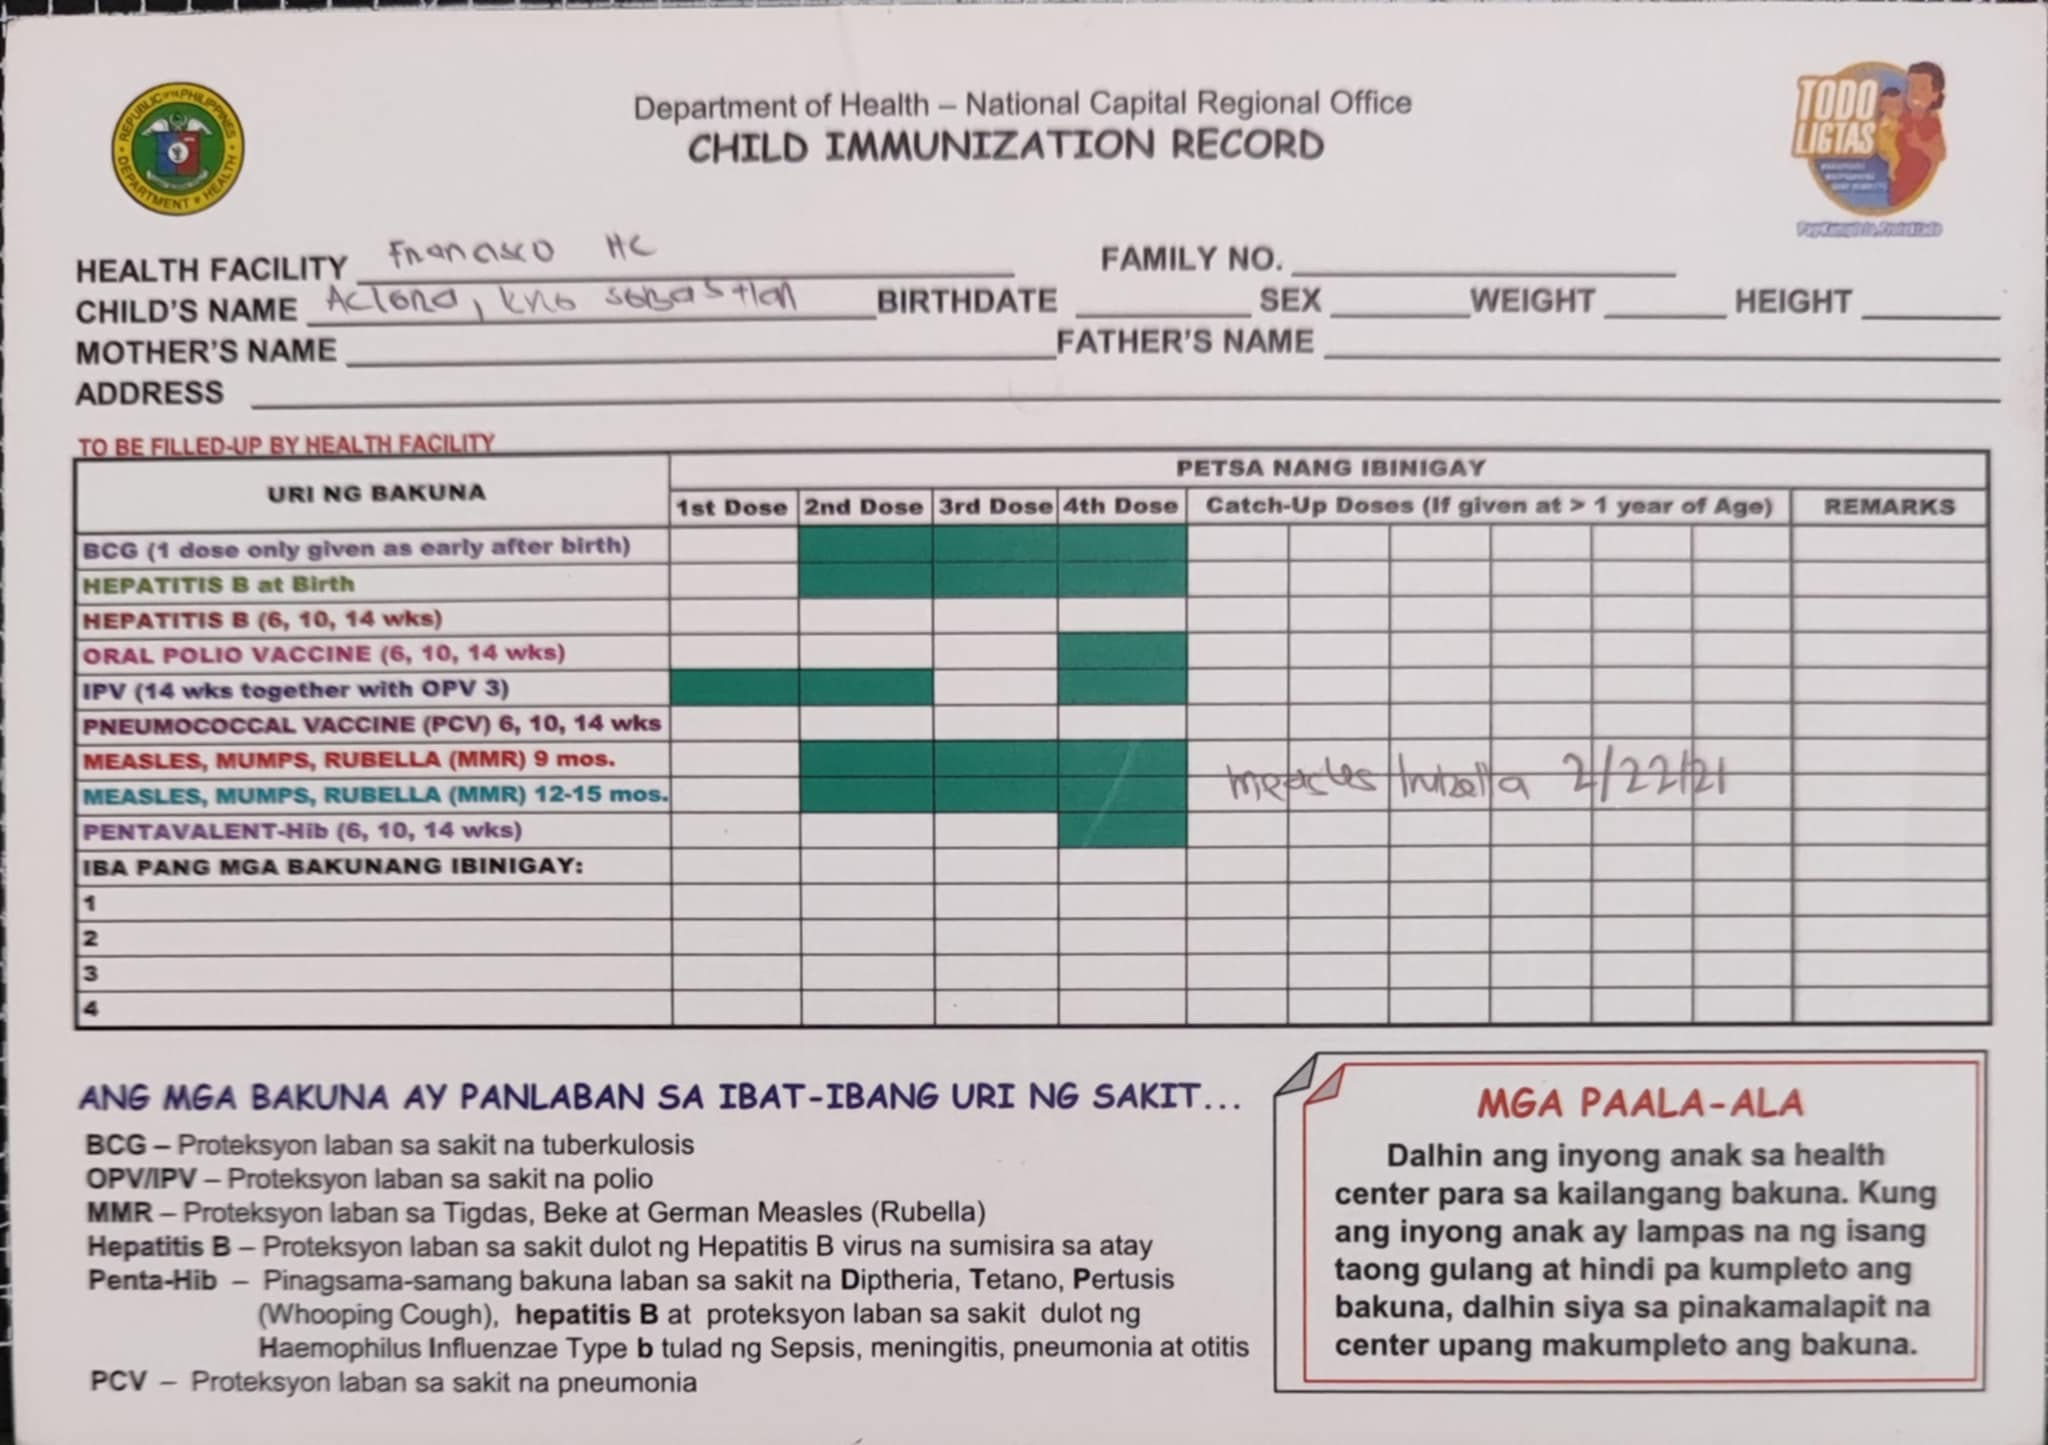 REPUBLIC OF THE PHILIPPINES
DEPARTMENT OF HEALTH
TODO
LIGTAS
Department of Health – National Capital Regional Office
CHILD IMMUNIZATION RECORD
HEALTH FACILITY Francisco HC FAMILY NO.
CHILD'S NAME BIRTHDATE SEX WEIGHT HEIGHT
MOTHER'S NAME FATHER'S NAME
ADDRESS
TO BE FILLED-UP BY HEALTH FACILITY
URI NG BAKUNA PETSA NANG IBINIGAY
1st Dose 2nd Dose 3rd Dose 4th Dose Catch-Up Doses (If given at > 1 year of Age) REMARKS
BCG (1 dose only given as early after birth)
HEPATITIS B at Birth
HEPATITIS B (6, 10, 14 wks)
ORAL POLIO VACCINE (6, 10, 14 wks)
IPV (14 wks together with OPV 3)
PNEUMOCOCCAL VACCINE (PCV) 6, 10, 14 wks
MEASLES, MUMPS, RUBELLA (MMR) 9 mos.
Measles rubella 2/22/21
MEASLES, MUMPS, RUBELLA (MMR) 12-15 mos.
PENTAVALENT-Hib (6, 10, 14 wks)
IBA PANG MGA BAKUNANG IBINIGAY:
1
2
3
4
ANG MGA BAKUNA AY PANLABAN SA IBAT-IBANG URI NG SAKIT...
BCG – Proteksyon laban sa sakit na tuberkulosis
OPV/IPV – Proteksyon laban sa sakit na polio
MMR – Proteksyon laban sa Tigdas, Beke at German Measles (Rubella)
Hepatitis B – Proteksyon laban sa sakit dulot ng Hepatitis B virus na sumisira sa atay
Penta-Hib – Pinagsama-samang bakuna laban sa sakit na Diptheria, Tetano, Pertusis
(Whooping Cough), hepatitis B at proteksyon laban sa sakit dulot ng
Haemophilus Influenzae Type b tulad ng Sepsis, meningitis, pneumonia at otitis
PCV – Proteksyon laban sa sakit na pneumonia
MGA PAALA-ALA
Dalhin ang inyong anak sa health
center para sa kailangang bakuna. Kung
ang inyong anak ay lampas na ng isang
taong gulang at hindi pa kumpleto ang
bakuna, dalhin siya sa pinakamalapit na
center upang makumpleto ang bakuna.